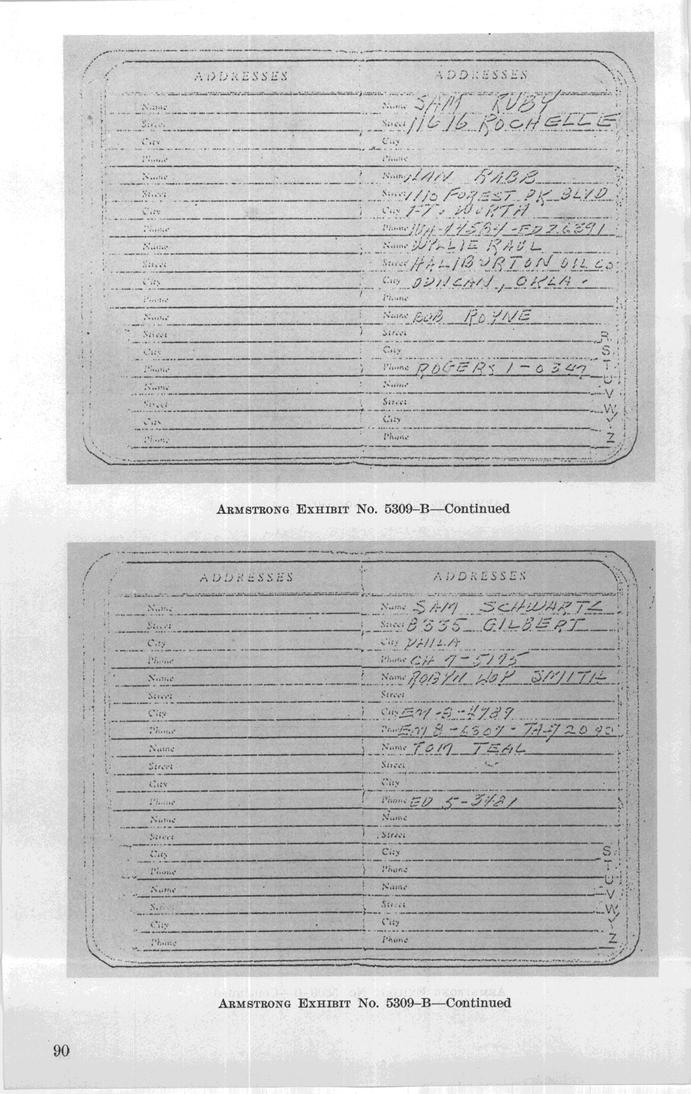 ADDRESSES ADDRESSES
Name Name SAM RUBY
Street Street 11616 ROCHELLE
City City
Phone Phone
Name Name RABB
Street Street 1110 FOREST PK BLVD
City City FT. WORTH
Phone Phone
Name Name WYLLIE RAUL
Street Street HALIBURTON OIL CO
City City DUNCAN, OKLA.
Phone Phone
Name Name BOB ROYNE
Street Street R
City City S
Phone Phone ROGERS 1-0347 T
Name Name U
Street Street V
City City W
Phone Phone Z
ARMSTRONG EXHIBIT No. 5309-B—Continued
ADDRESSES ADDRESSES
Name Name SAM SCHWARTZ
Street Street 8335 GILBERT
City City PHILA
Phone Phone CH 7-5195
Name Name ROBYN SMITH
Street Street
City City EM-8-4789
Phone Phone
Name Name TOM TEAL
Street Street
City City
Phone Phone ED 5-3481
Name Name
Street Street
City City S
Phone Phone T
Name Name U
Street Street V W
City City Y
Phone Phone Z
ARMSTRONG EXHIBIT No. 5309-B—Continued
90